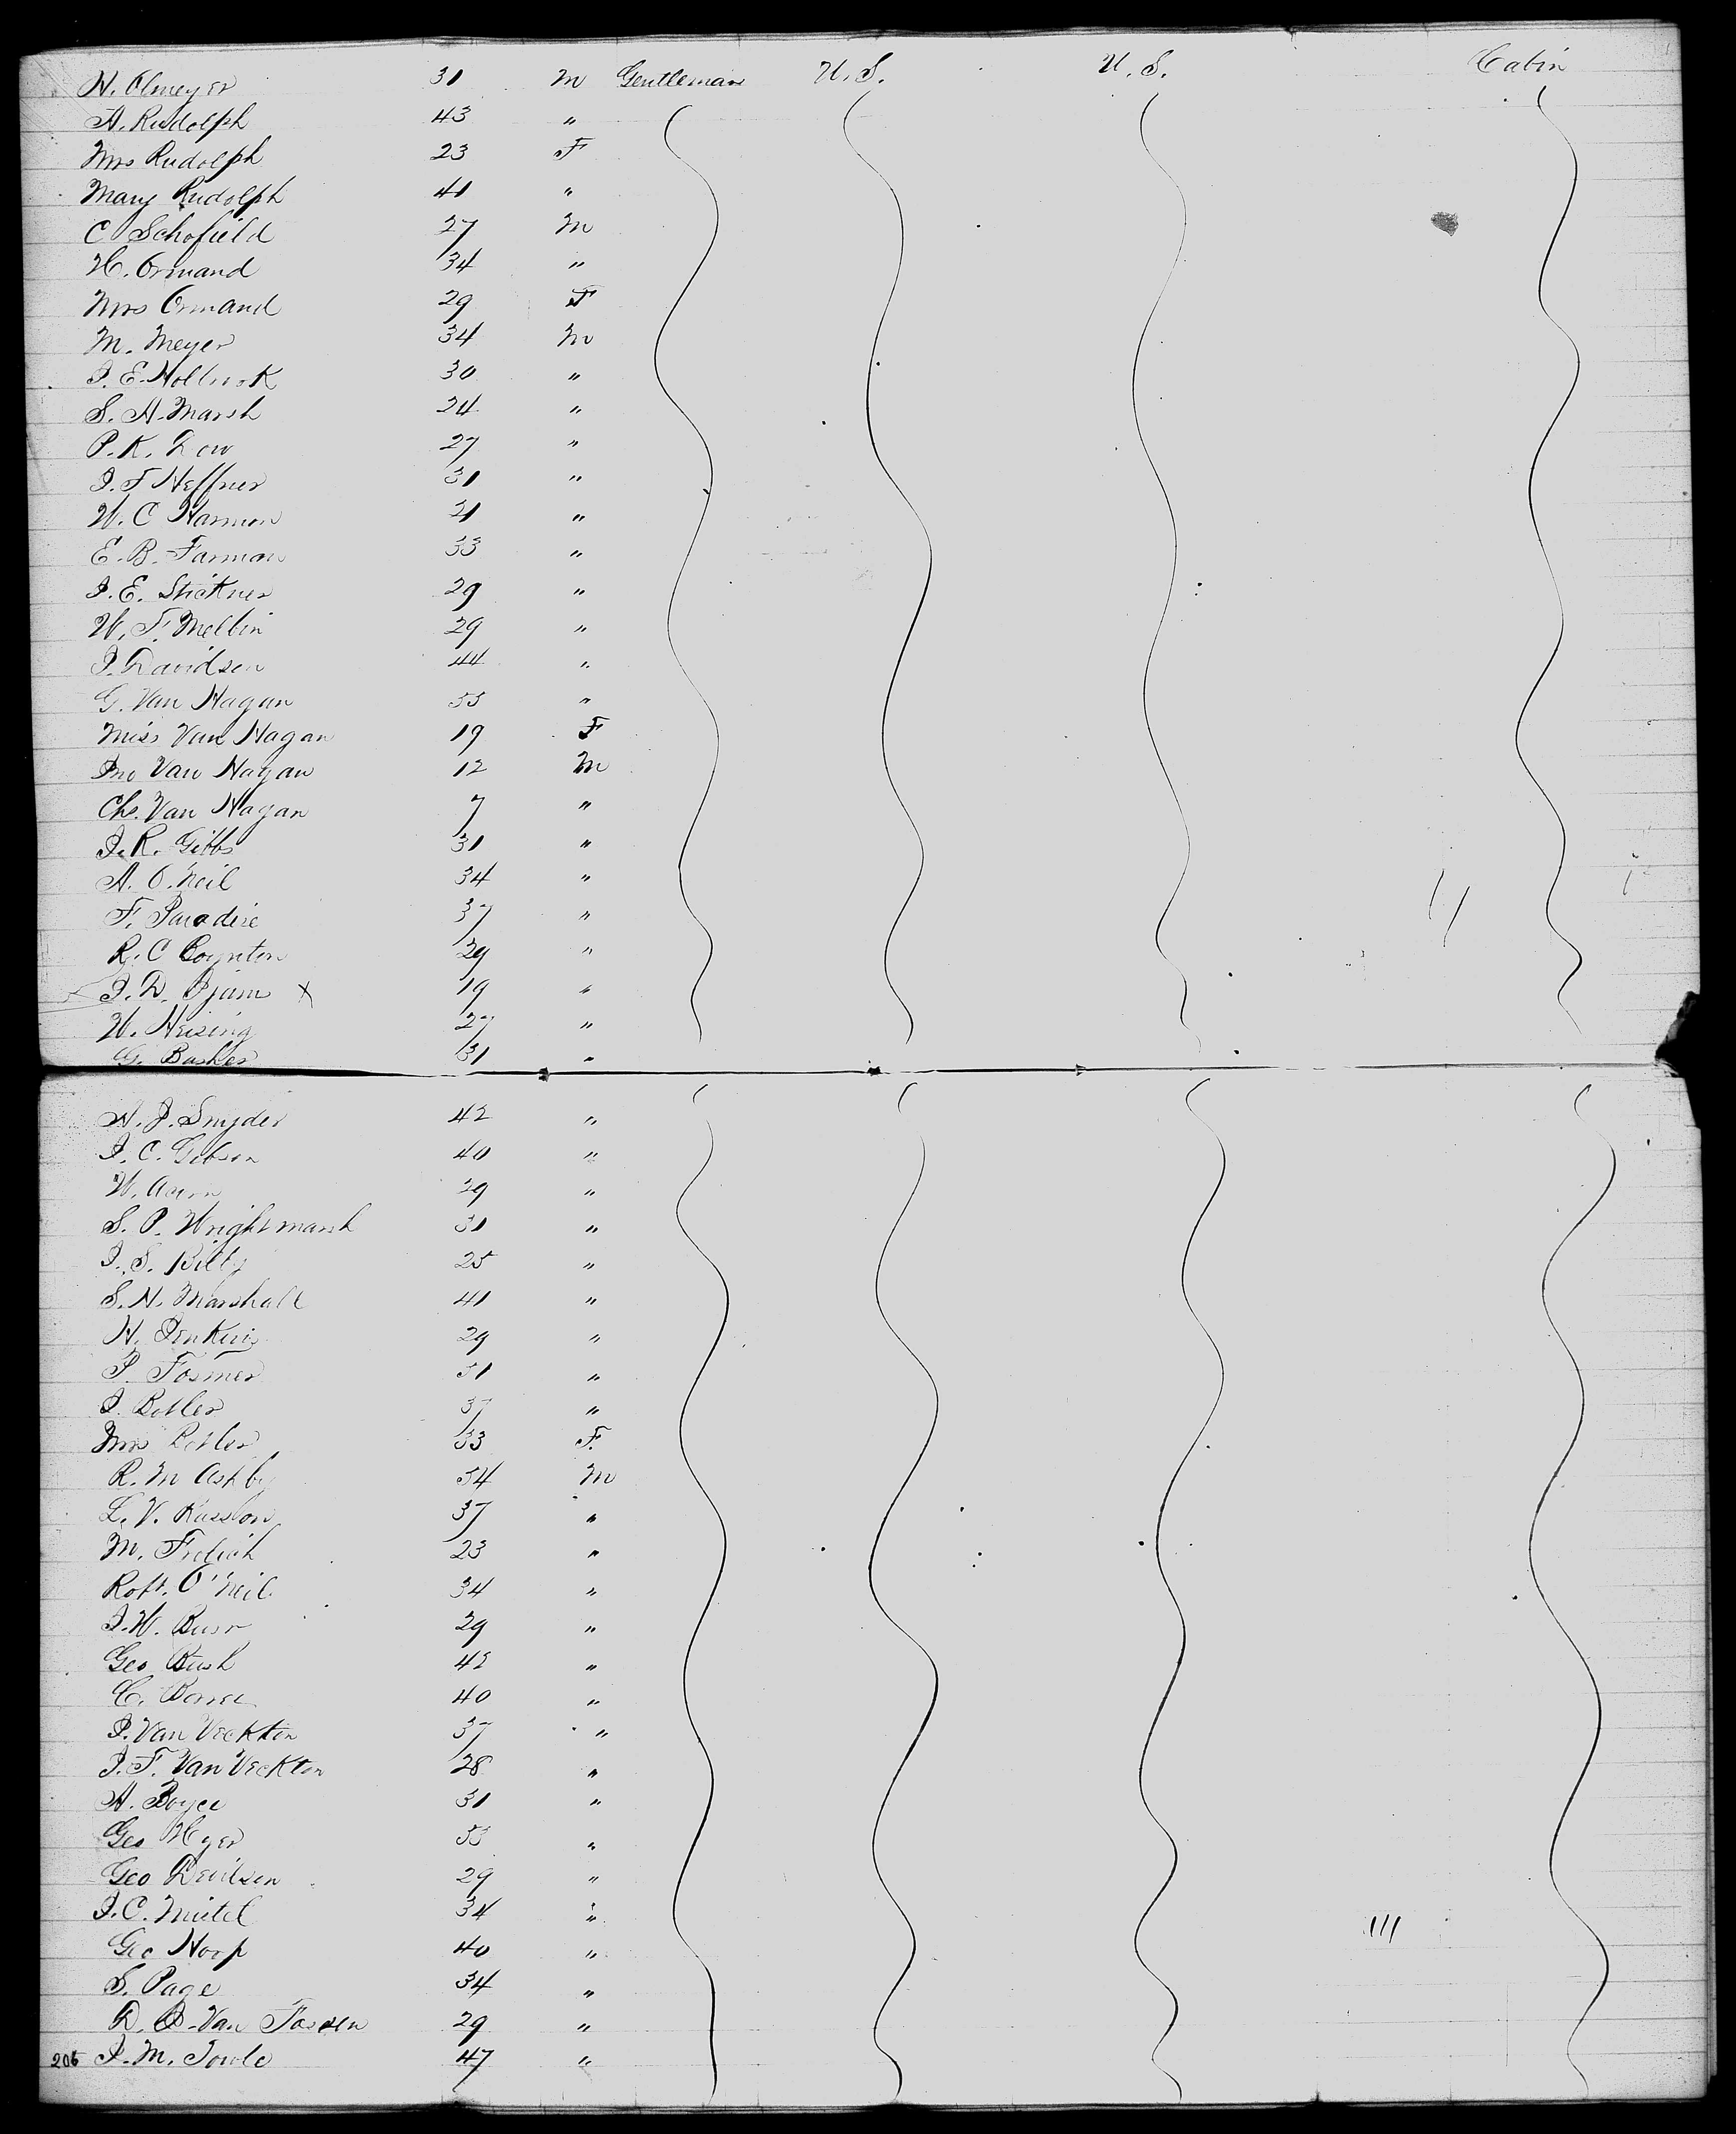 H. Olmeyer 31 M Gentleman U.S. U.S. Cabin
A. Rudolph 43 "
Mrs Rudolph 23 F
Mary Rudolph 41 "
C Schofield 27 M
H. Ormand 34 "
Mrs Ormand 29 F
M. Meyer 34 M
J. E. Holbrook 30 "
S. H. Marsh 24 "
P. K. Dow 27 "
J. F Heffner 31 "
W. C Harmon 21 "
E. B. Farman 33 "
J. E. Stickner 29 "
W. F. Melbin 29 "
J. Davidson 44 "
G. Van Hagan 55 "
Miss Van Hagan 19 F
Jno Van Hagan 12 M
Chs. Van Hagan 7 "
J. R. Gibbs 31 "
A. O'Neil 34 "
F. Paradise 37 "
R. C Boynton 29 "
J. D. X 19 "
W. Heising 27 "
G. Basker 31 "
H. J. Snyder 42 "
J. C. Gibson 40 "
W. 29 "
S. P. Wrightmarsh 31 "
J. S. Billy 25 "
S. N. Marshall 41 "
H. Jenkins 29 "
P. Fosmer 31 "
J. Botler 37 "
Mrs Botler 33 F.
R. M Ashby 34 M
L. V. 37 "
M. Frelich 23 "
Robt. O'Neil 34 "
J. W. Burr 29 "
Geo Bush 42 "
C. 40 "
J. Van Veckten 37 "
J. F. Van Veckten 28 "
A. Boyce 31 "
Geo Hyer 53 "
Geo 29 "
J. C. 34 "
Geo Hoop 40 "
S. Page 34 "
D. B. Van Fossen 29 "
206 J. M. Towle 47 "